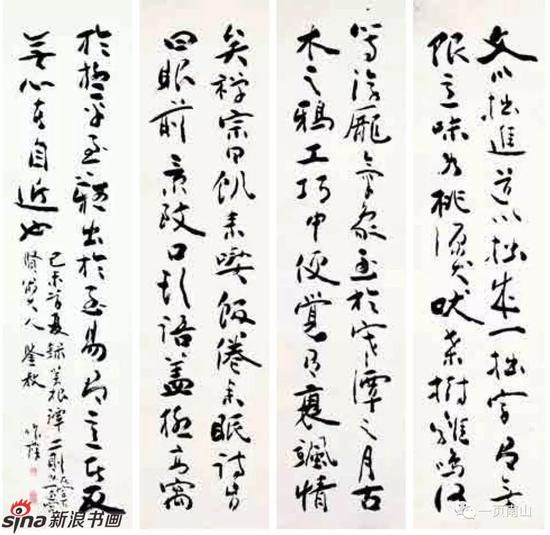 文以拙進道以拙成一拙字有無
限意味如桃源犬吠桑樹雞鳴何
等淳龐氣象至於寒潭之月古
木之鴉工巧中便覺有衰颯情
矣禪宗曰飢來喫飯倦來眠詩旨
曰眼前景致口頭語蓋極高寓
於極平至難出於至易有意者反
無心者自近也
己未首夏錄菜根譚二則
大人 鑒教
sina 新浪书画
一页南山